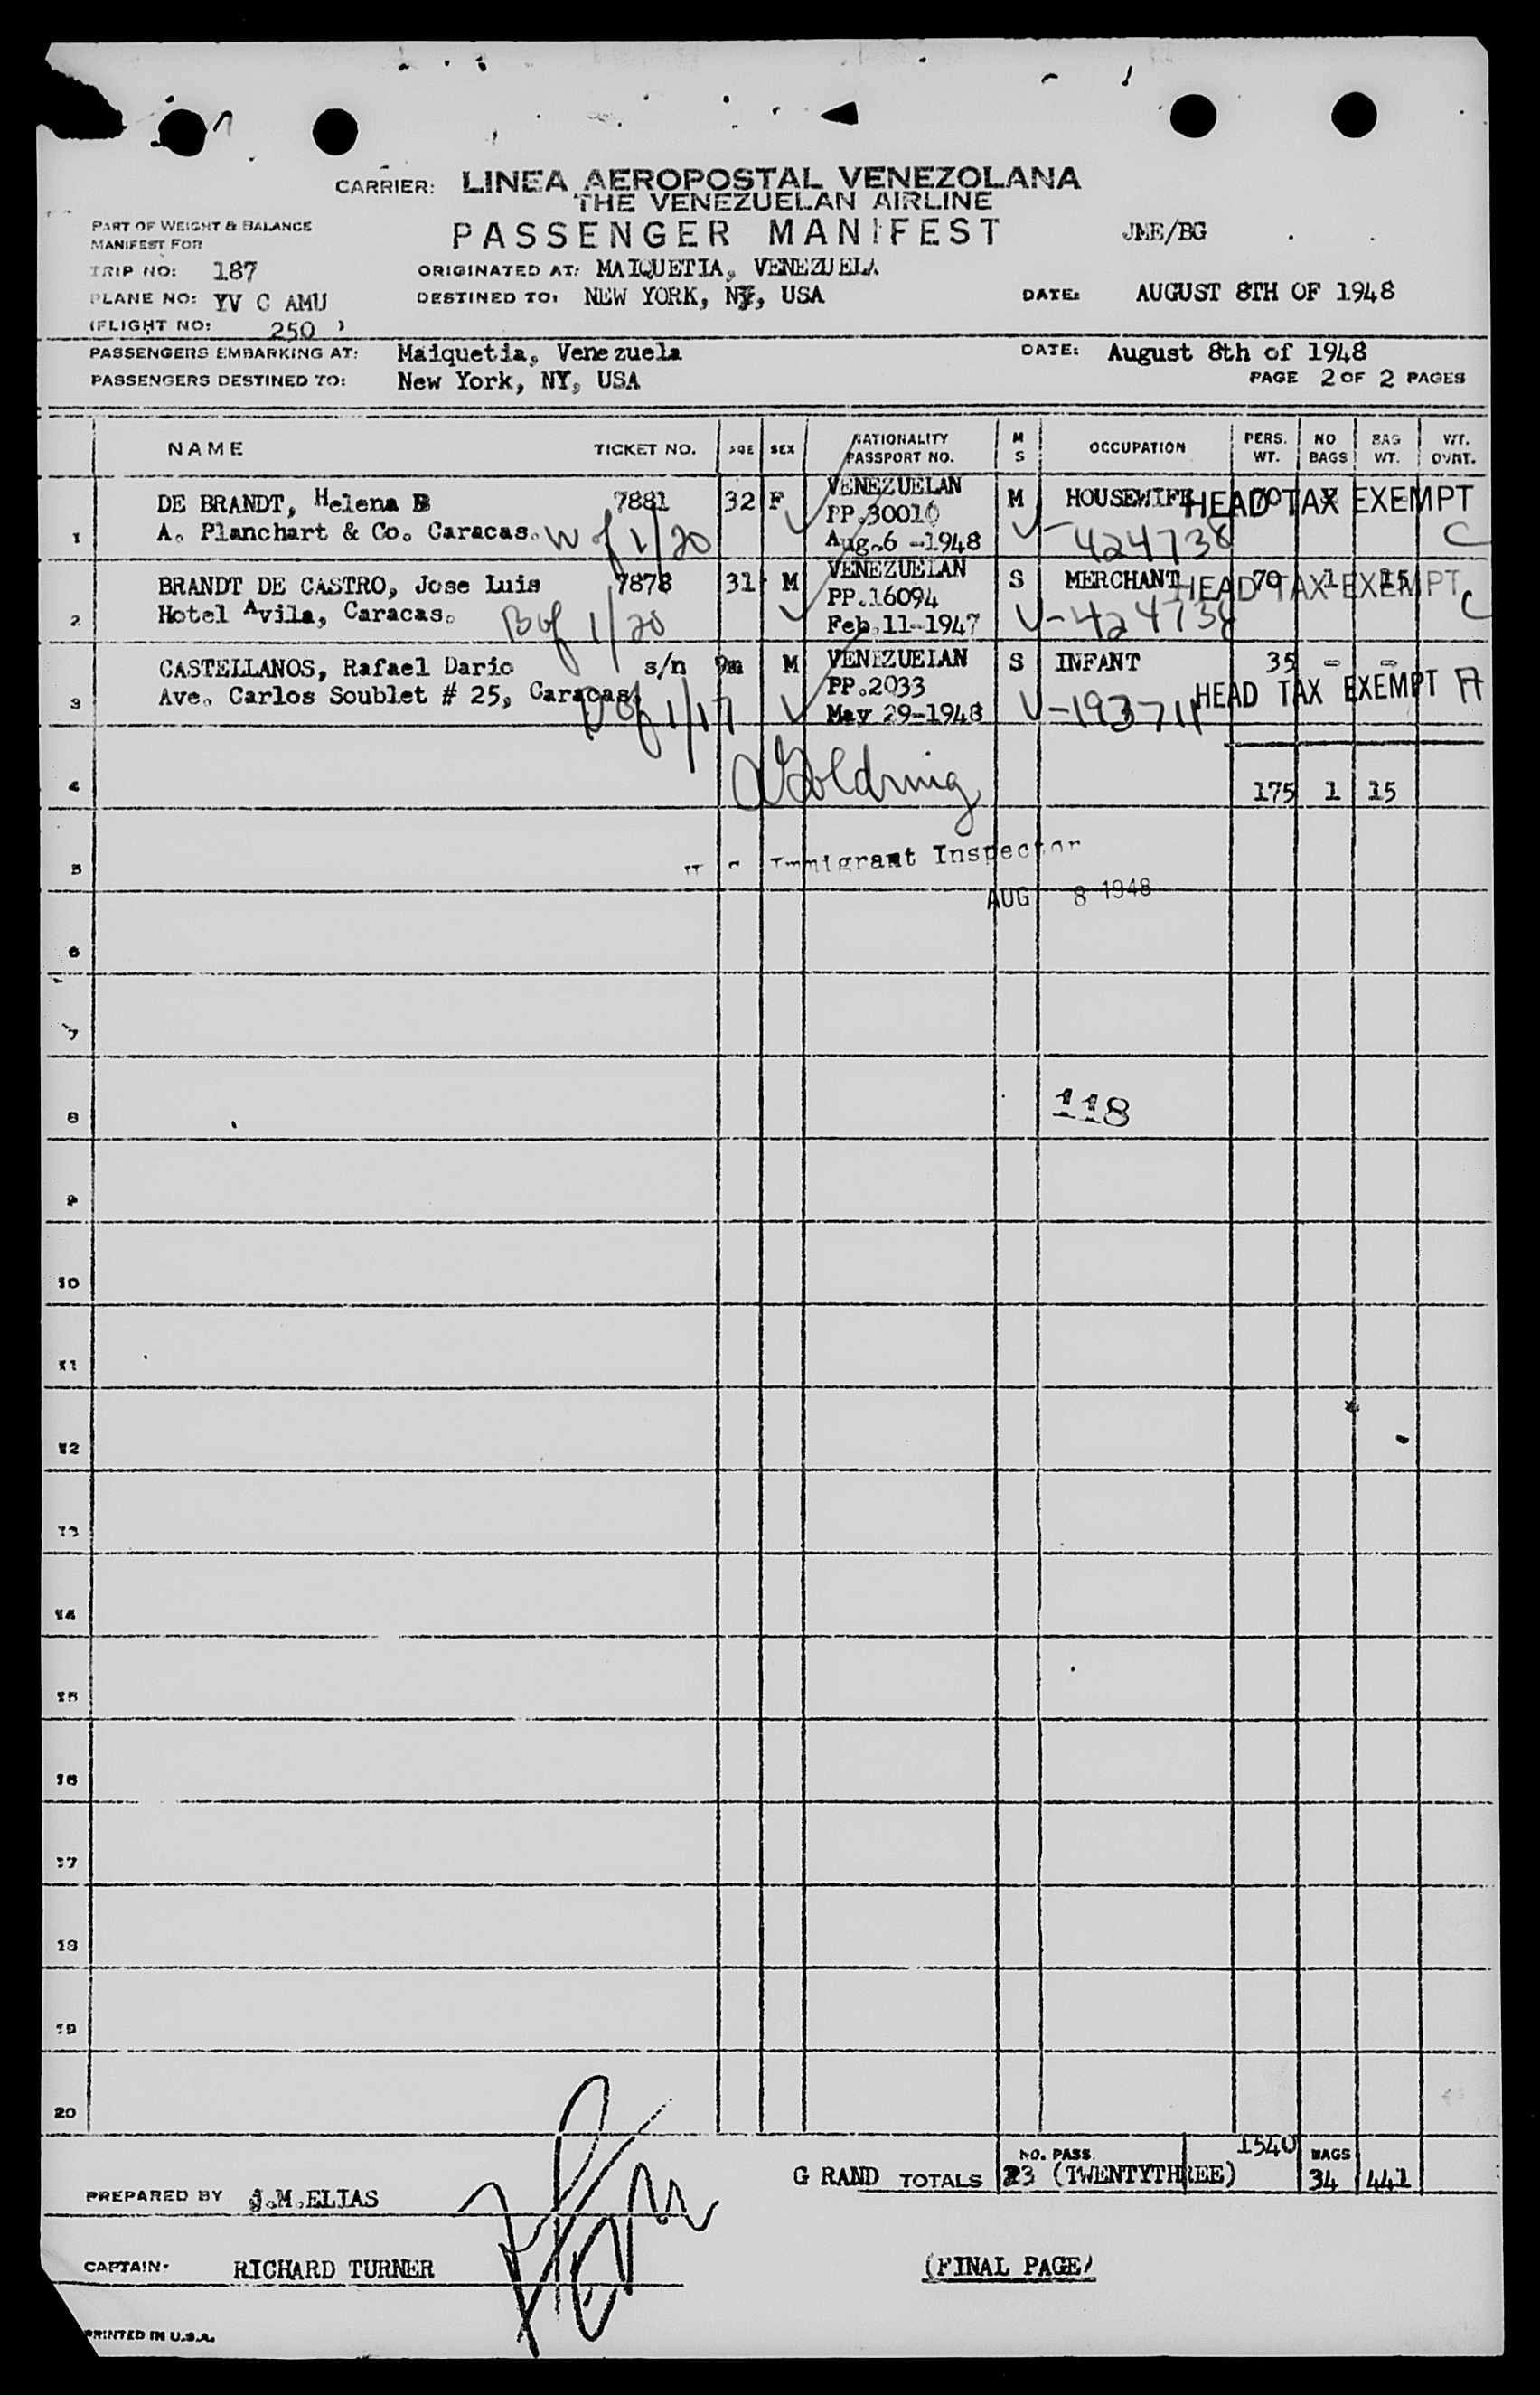 CARRIER: LINEA AEROPOSTAL VENEZOLANA
THE VENEZUELAN AIRLINE
PART OF WEIGHT & BALANCE
MANIFEST FOR
PASSENGER MANIFEST
JME/BG
TRIP NO: 187
ORIGINATED AT: MAIQUETIA, VENEZUELA
PLANE NO: YV C AMU
DESTINED TO: NEW YORK, NY, USA
DATE: AUGUST 8TH OF 1948
(FLIGHT NO: 250 )
PASSENGERS EMBARKING AT: Maiquetia, Venezuela
DATE: August 8th of 1948
PASSENGERS DESTINED TO: New York, NY, USA
PAGE 2 OF 2 PAGES
NAME TICKET NO. AGE SEX NATIONALITY PASSPORT NO. M S OCCUPATION PERS. WT. NO BAGS BAG WT. WT. OVRT.
DE BRANDT, Helena B 7881 32 F VENEZUELAN M HOUSEWIFE 70 HEAD TAX EXEMPT
PP.30010
1 A. Planchart & Co. Caracas. W of 1/20 Aug.6 -1948 V-424738 C
BRANDT DE CASTRO, Jose Luis 7878 31 M VENEZUELAN S MERCHANT 70 1 15 HEAD TAX EXEMPT
PP.16094
2 Hotel Avila, Caracas. B of 1/20 Feb.11-1947 V-424738 C
CASTELLANOS, Rafael Dario s/n 9m M VENEZUELAN S INFANT 35 - -
PP.2033
3 Ave. Carlos Soublet # 25, Caracas. of 1/17 May 29-1948 V-193711 HEAD TAX EXEMPT A
4 Goldring 175 1 15
5 Immigrant Inspector
AUG 8 1948
6
7
8 118
9
10
11
12
13
14
15
16
17
18
19
20
GRAND TOTALS NO. PASS. 23 (TWENTYTHREE) 1540 BAGS 34 441
PREPARED BY J.M.ELIAS
CAPTAIN: RICHARD TURNER
(FINAL PAGE)
PRINTED IN U.S.A.